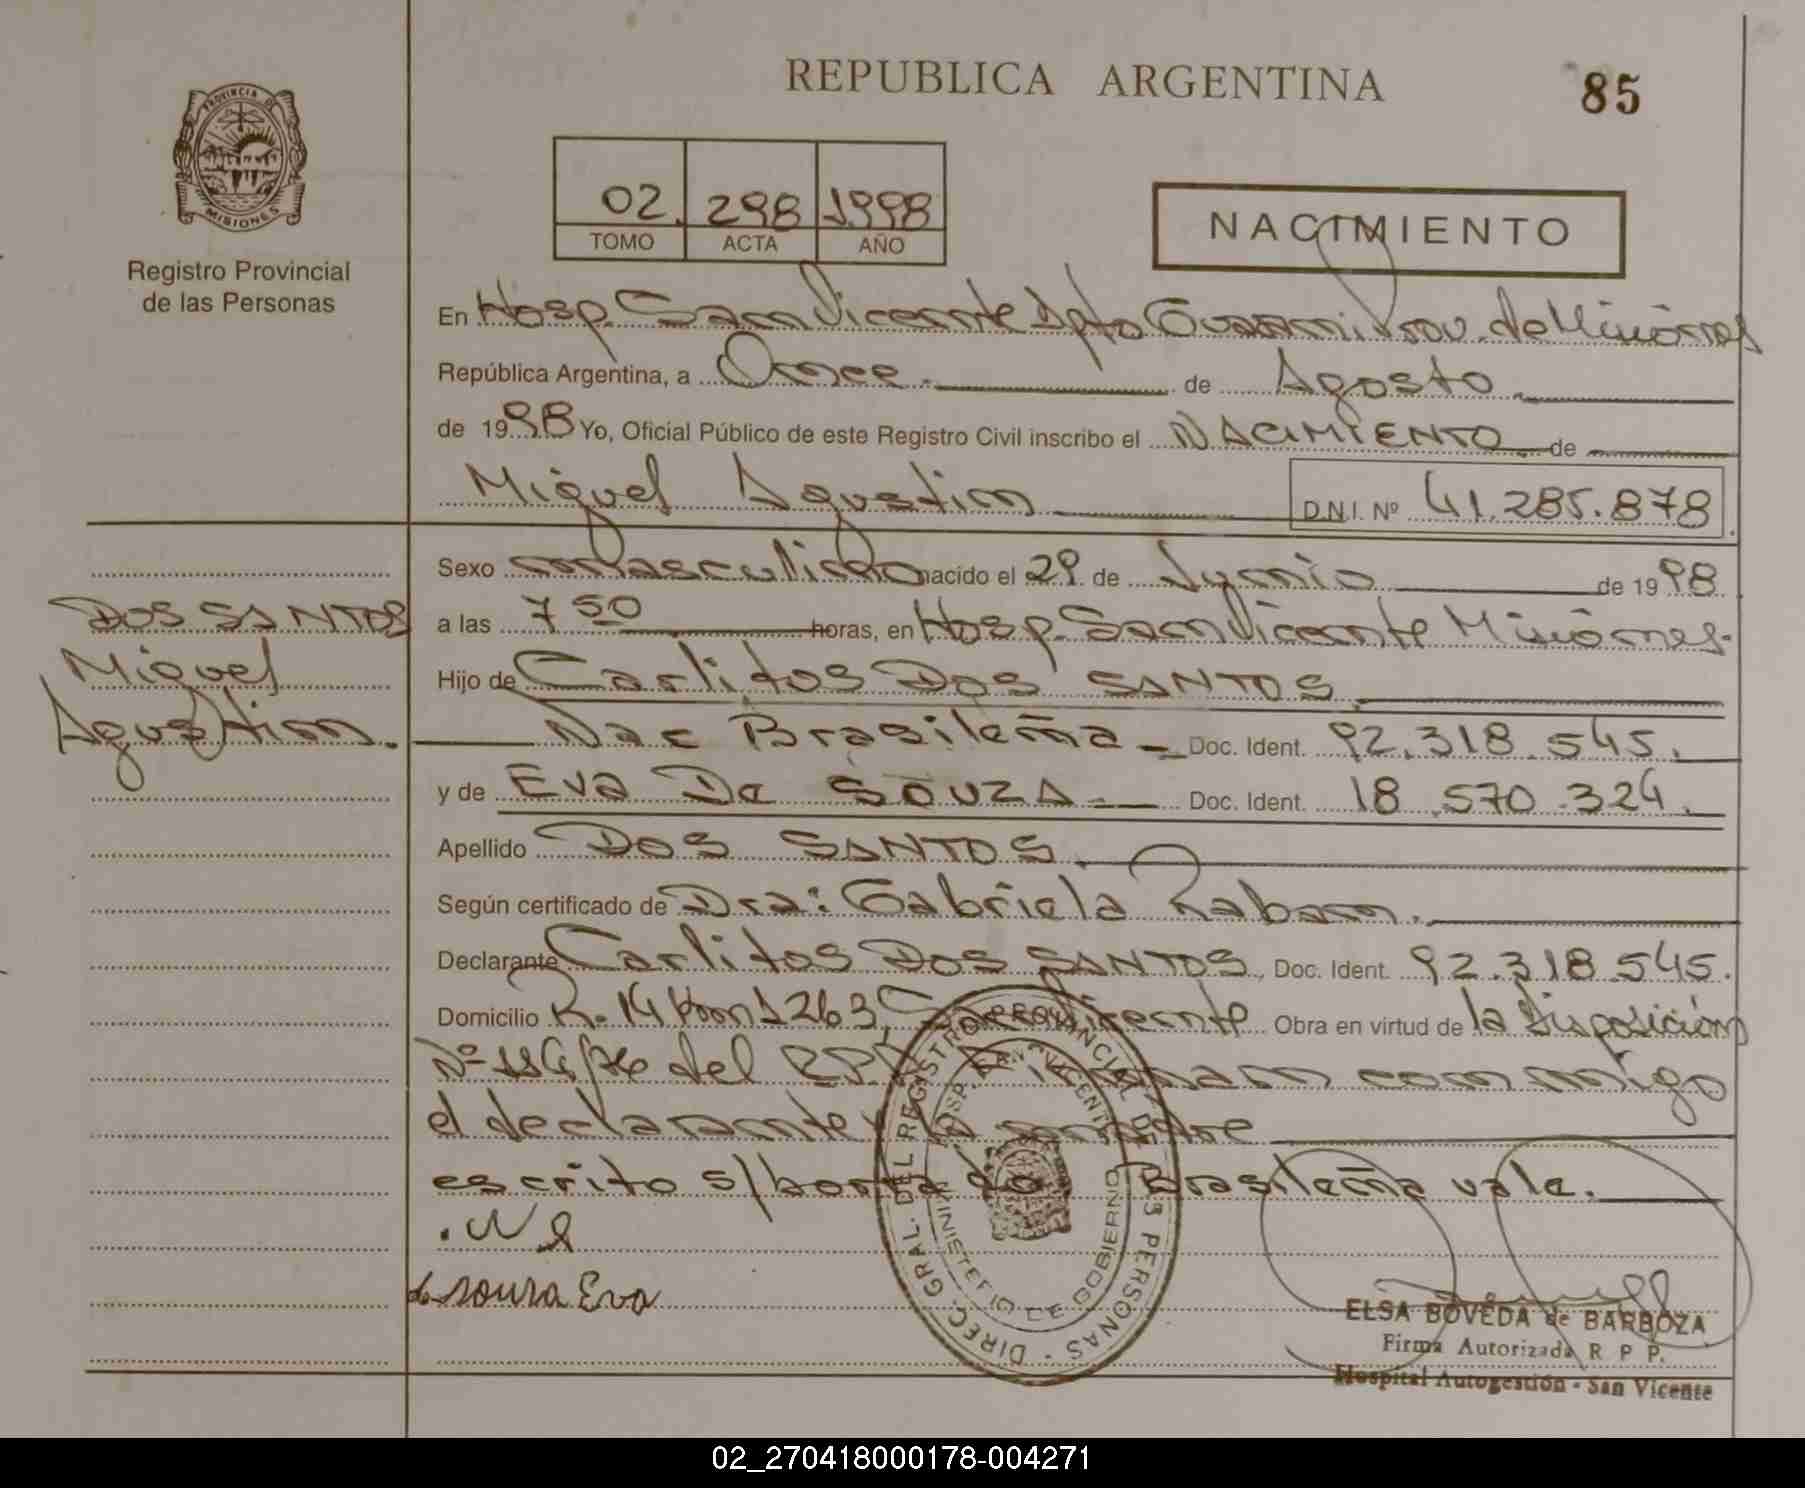 REPUBLICA ARGENTINA
85
PROVINCIA DE
MISIONES
Registro Provincial
de las Personas
02 298 1998
TOMO ACTA AÑO
NACIMIENTO
En Hosp. San Vicente Dpto Guarani Prov. de Misiones
República Argentina, a Once de Agosto
de 1998 Yo, Oficial Público de este Registro Civil inscribo el NACIMIENTO de
Miguel Agustin D.N.I. Nº 41.285.878
Sexo masculino nacido el 29 de Junio de 1998
a las 7 50 horas, en Hosp. San Vicente Misiones.
DOS SANTOS
Miguel
Agustin.
Hijo de Carlitos DOS SANTOS
Nac Brasileña Doc. Ident. 92.318.545.
y de Eva De SOUZA Doc. Ident. 18.570.324.
Apellido DOS SANTOS.
Según certificado de Dra: Gabriela Raban.
Declarante Carlitos DOS SANTOS, Doc. Ident. 92.318.545.
Domicilio R. 14 Km 1263, San Vicente Obra en virtud de la Disposición
Nº del RPP Firman con migo
el declarante y la madre
escrito s/borrado Brasileña vale.
de soura Eva
DIREC. GRAL. DEL REGISTRO PROVINCIAL DE LAS PERSONAS
HOSP. SAN VICENTE
MINISTERIO DE GOBIERNO
ELSA BOVEDA de BARBOZA
Firma Autorizada R P P.
Hospital Autogestión - San Vicente
02_270418000178-004271